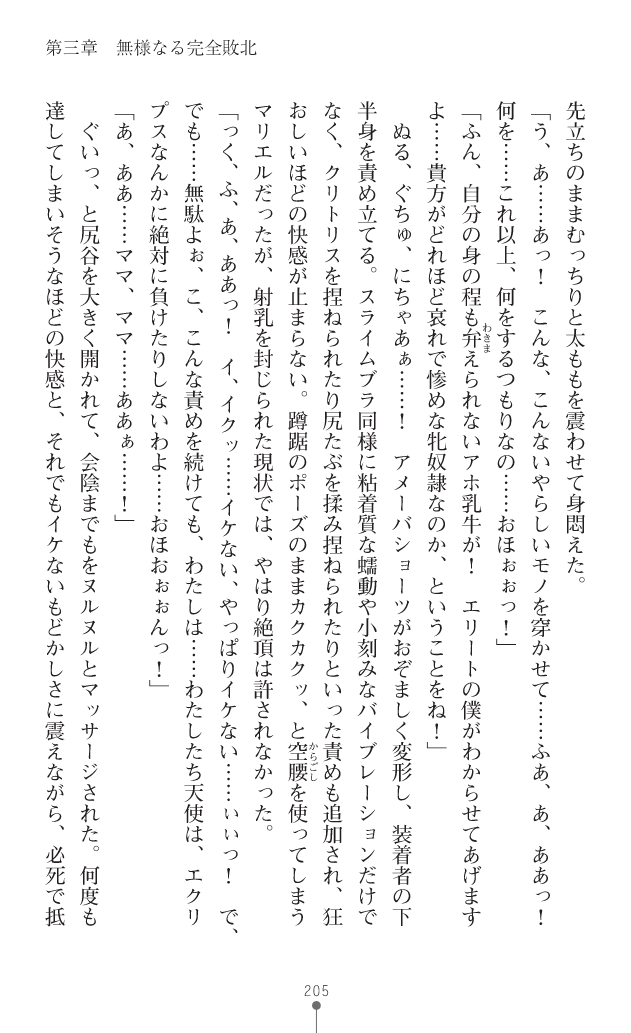 第三章　無様なる完全敗北
先立ちのままむっちりと太ももを震わせて身悶えた。
「う、あ……あっ！　こんな、こんないやらしいモノを穿かせて……ふあ、あ、ああっ！
何を……これ以上、何をするつもりなの……おほぉぉっ！」
「ふん、自分の身の程も弁えられないアホ乳牛が！　エリートの僕がわからせてあげます
わきま
よ……貴方がどれほど哀れで惨めな牝奴隷なのか、ということをね！」
ぬる、ぐちゅ、にちゃあぁ……！　アメーバショーツがおぞましく変形し、装着者の下
半身を責め立てる。スライムブラ同様に粘着質な蠕動や小刻みなバイブレーションだけで
なく、クリトリスを捏ねられたり尻たぶを揉み捏ねられたりといった責めも追加され、狂
おしいほどの快感が止まらない。蹲踞のポーズのままカクカクッ、と空腰を使ってしまう
からごし
マリエルだったが、射乳を封じられた現状では、やはり絶頂は許されなかった。
「っく、ふ、あ、ああっ！　イ、イクッ……イケない、やっぱりイケない……ぃぃっ！　で、
でも……無駄よぉ、こ、こんな責めを続けても、わたしは……わたしたち天使は、エクリ
プスなんかに絶対に負けたりしないわよ……おほおぉぉんっ！」
「あ、ああ……ママ、ママ……ああぁ……！」
ぐいっ、と尻谷を大きく開かれて、会陰までもをヌルヌルとマッサージされた。何度も
達してしまいそうなほどの快感と、それでもイケないもどかしさに震えながら、必死で抵
205